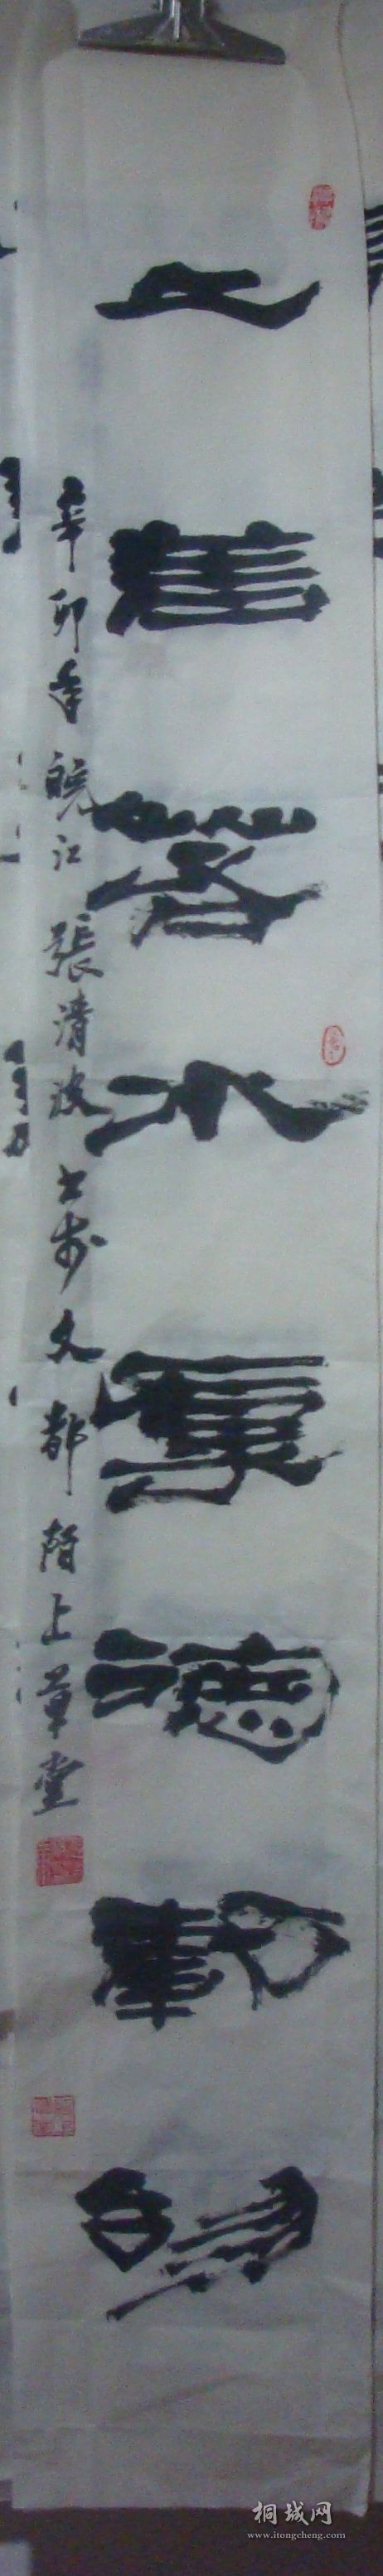 上善若水厚德載物
辛卯年皖江張清波書於文都陌上草堂
桐城网
www.itongcheng.com